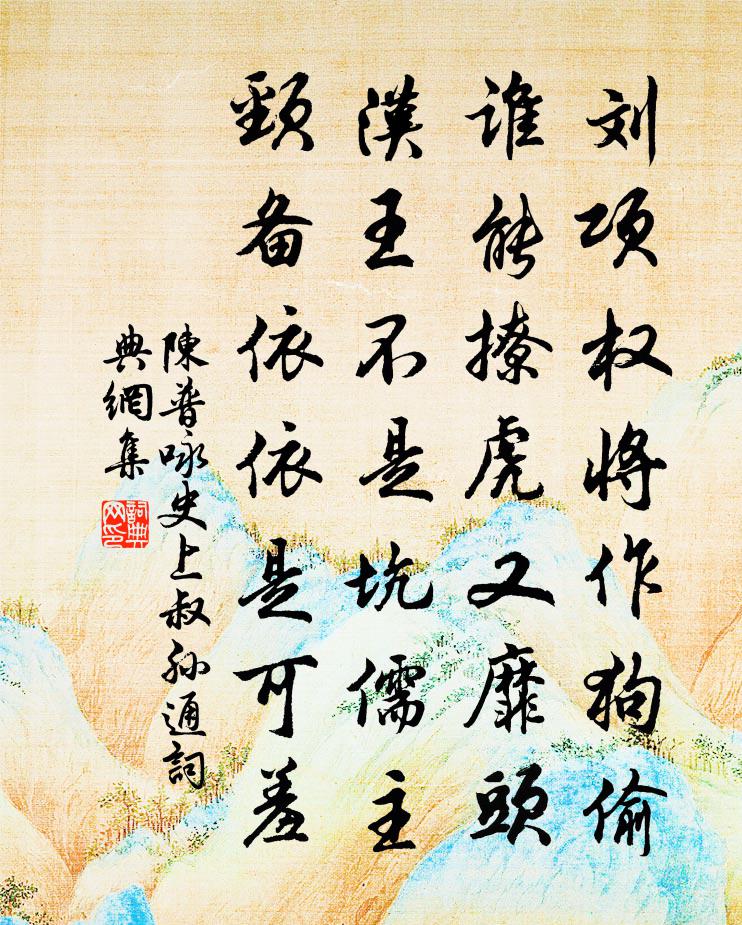 刘项权将作狗偷
谁能撩虎又靡頭
漢王不是坑儒主
颈备依依是可羞
陳普咏史上叔孙通詞
典網集
詞典网印